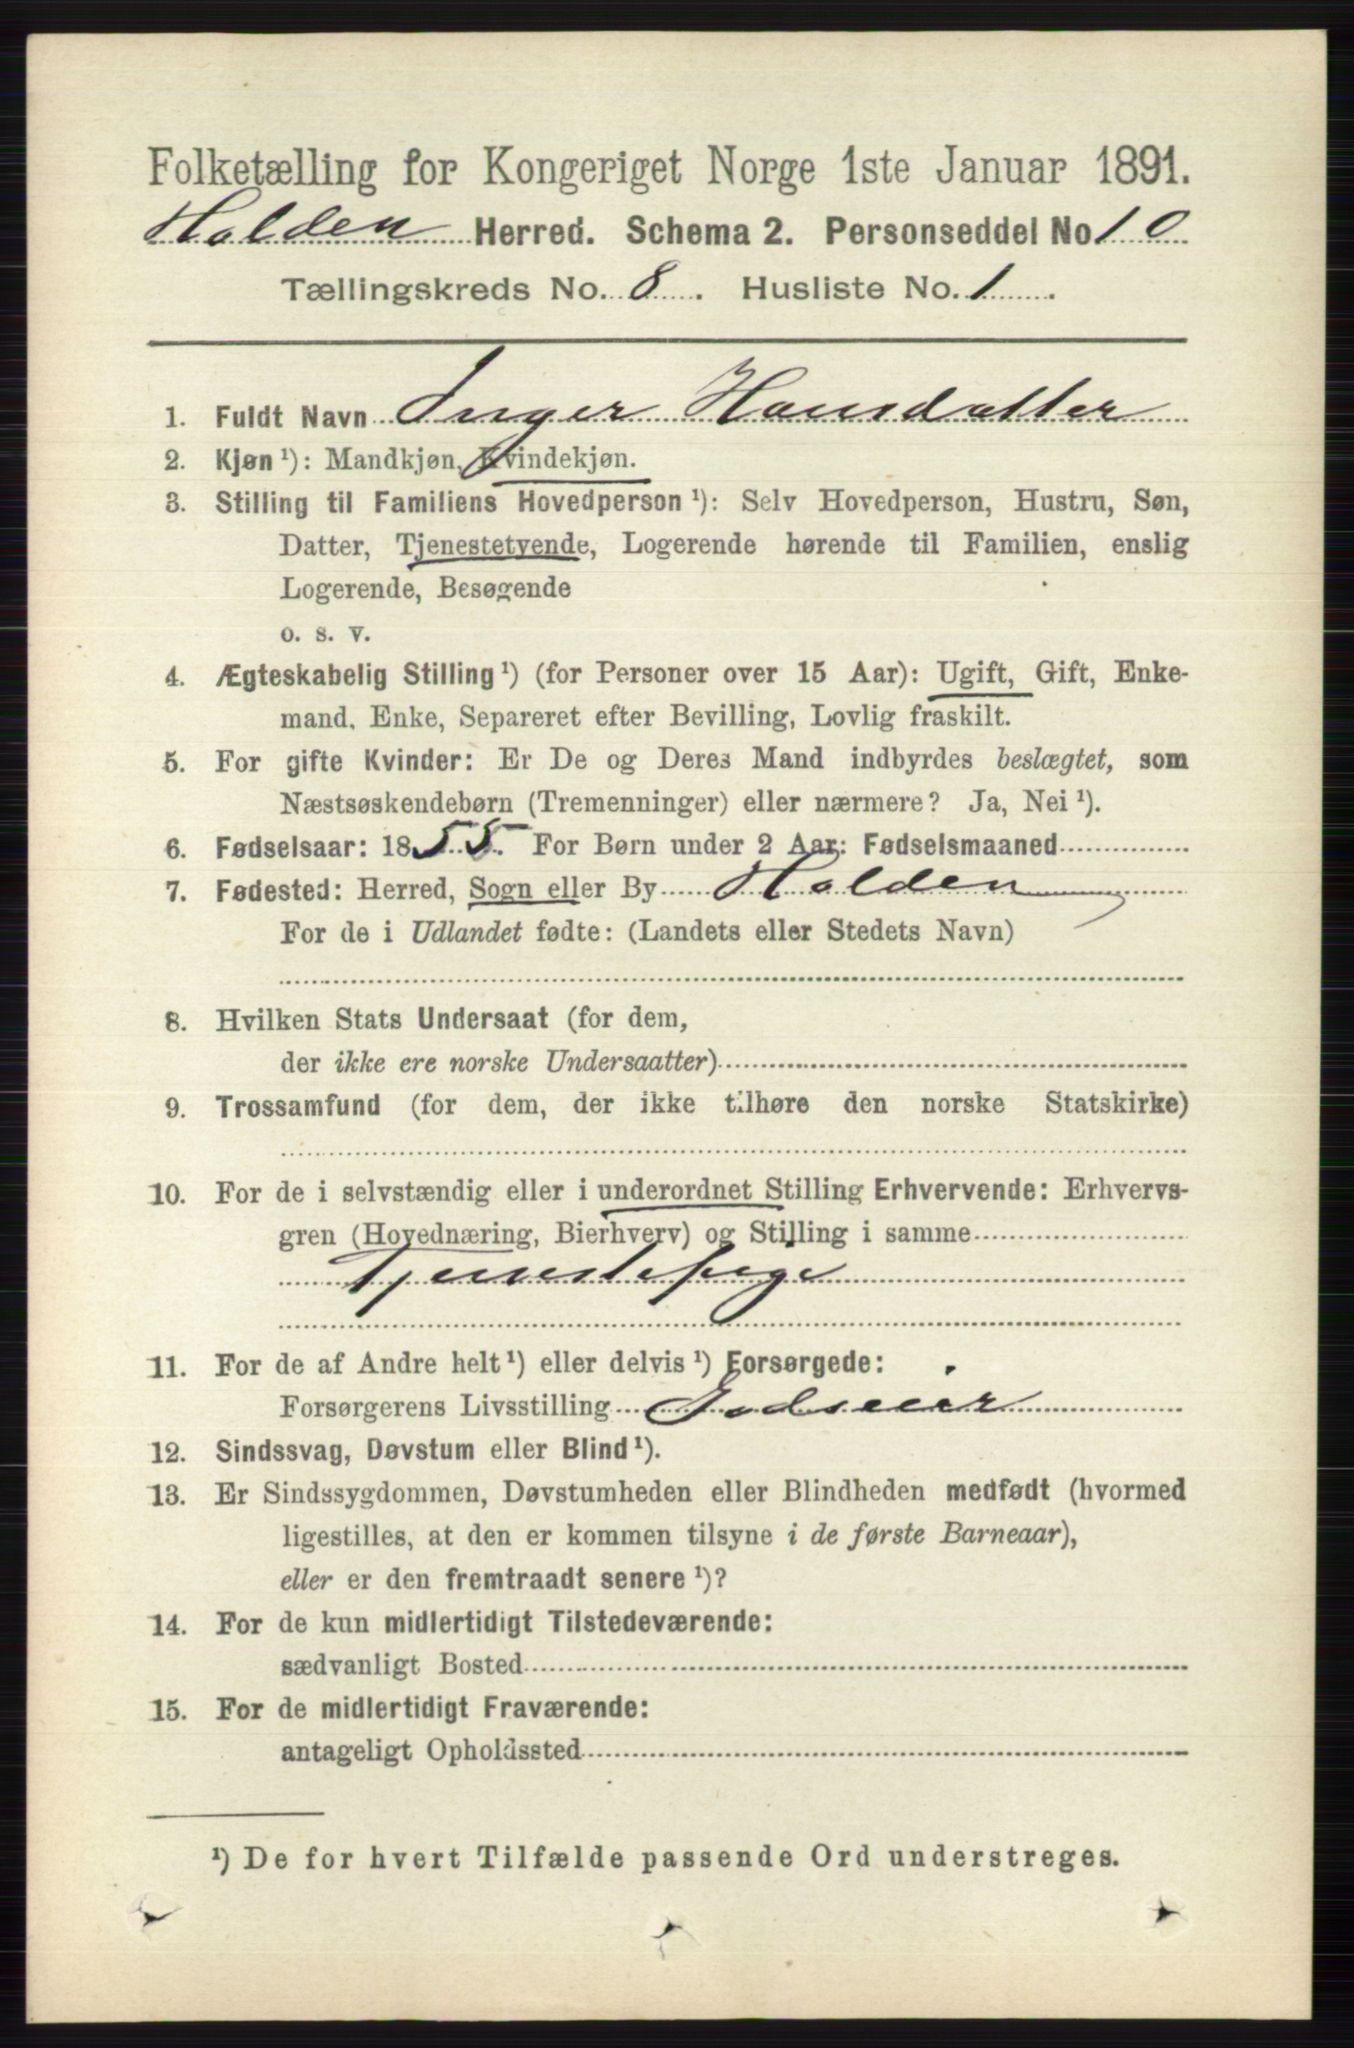 Folketælling for Kongeriget Norge 1ste Januar 1891.
Holden Herred. Schema 2. Personseddel No 10
Tællingskreds No. 8. Husliste No. 1.
1. Fuldt Navn Inger Hansdatter
2. Kjøn¹): Mandkjøn, Kvindekjøn.
3. Stilling til Familiens Hovedperson¹): Selv Hovedperson, Hustru, Søn,
Datter, Tjenestetyende, Logerende hørende til Familien, enslig
Logerende, Besøgende
o. s. v.
4. Ægteskabelig Stilling¹) (for Personer over 15 Aar): Ugift, Gift, Enke-
mand, Enke, Separeret efter Bevilling, Lovlig fraskilt.
5. For gifte Kvinder: Er De og Deres Mand indbyrdes beslægtet, som
Næstsøskendebørn (Tremenninger) eller nærmere? Ja, Nei¹).
6. Fødselsaar: 1855. For Børn under 2 Aar: Fødselsmaaned
7. Fødested: Herred, Sogn eller By Holden
For de i Udlandet fødte: (Landets eller Stedets Navn)
8. Hvilken Stats Undersaat (for dem,
der ikke ere norske Undersaatter)
9. Trossamfund (for dem, der ikke tilhøre den norske Statskirke)
10. For de i selvstændig eller i underordnet Stilling Erhvervende: Erhvervs-
gren (Hovednæring, Bierhverv) og Stilling i samme
Tjenestepige
11. For de af Andre helt¹) eller delvis¹) Forsørgede:
Forsørgerens Livsstilling Godseier
12. Sindssvag, Døvstum eller Blind¹).
13. Er Sindssygdommen, Døvstumheden eller Blindheden medfødt (hvormed
ligestilles, at den er kommen tilsyne i de første Barneaar),
eller er den fremtraadt senere¹)?
14. For de kun midlertidigt Tilstedeværende:
sædvanligt Bosted
15. For de midlertidigt Fraværende:
antageligt Opholdssted
¹) De for hvert Tilfælde passende Ord understreges.